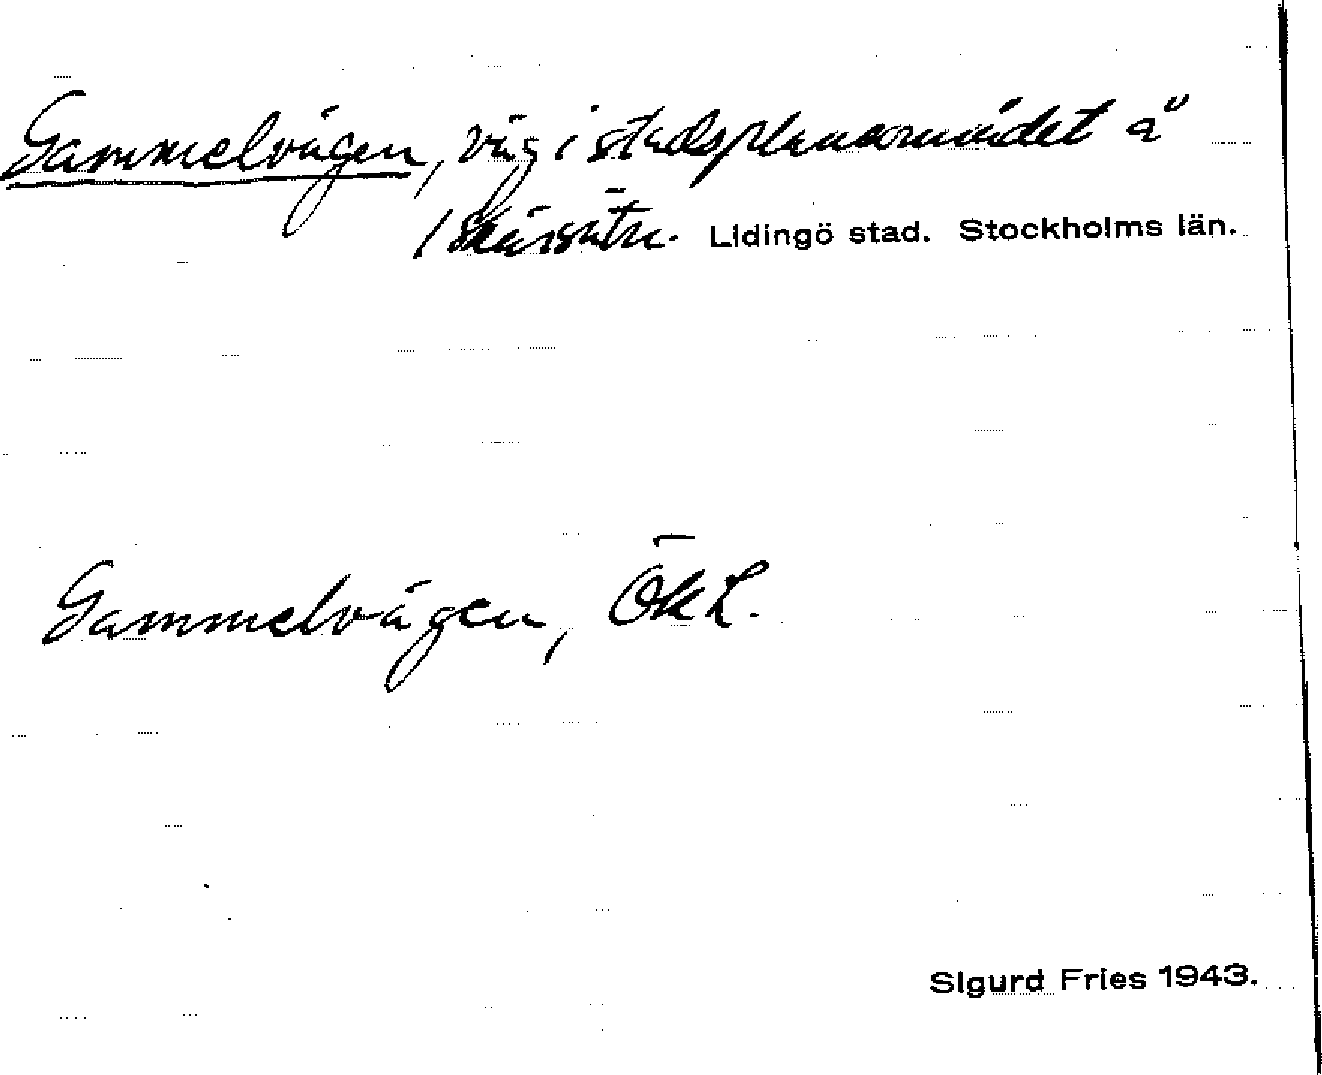 Gammelvägen, väg i stadsplaneområdet å
/ Skärsätra. Lidingö stad. Stockholms län.
Gammelvägen, ÖkL.
Sigurd Fries 1943.